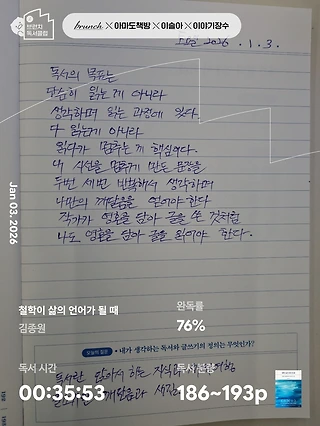 브런치
독서클럽
brunch × 아마도책방 × 이슬아 × 이야기장수
토요일 2026. 1. 3.
독서의 목표는
단순히 읽는 게 아니라
생각하며 읽는 과정에 있다.
다 읽는게 아니라
읽다가 멈추는 게 핵심이다.
내 시선을 멈추게 만든 문장을
두번 세번 반복해서 생각하며
나만의 깨달음을 얻어야 한다
작가가 영혼을 담아 글을 쓴 것처럼
나도 영혼을 담아 글을 읽어야 한다.
Jan 03, 2026
철학이 삶의 언어가 될 때
김종원
완독률
76%
오늘의 질문 • 내가 생각하는 독서와 글쓰기의 정의는 무엇인가?
독서란 앉아서 하는
독서 시간
00:35:53
독서 분량
186~193p